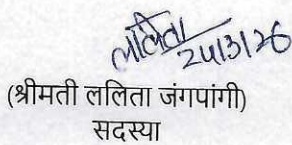 ललिता
24/3/26
(श्रीमती ललिता जंगपांगी)
सदस्या